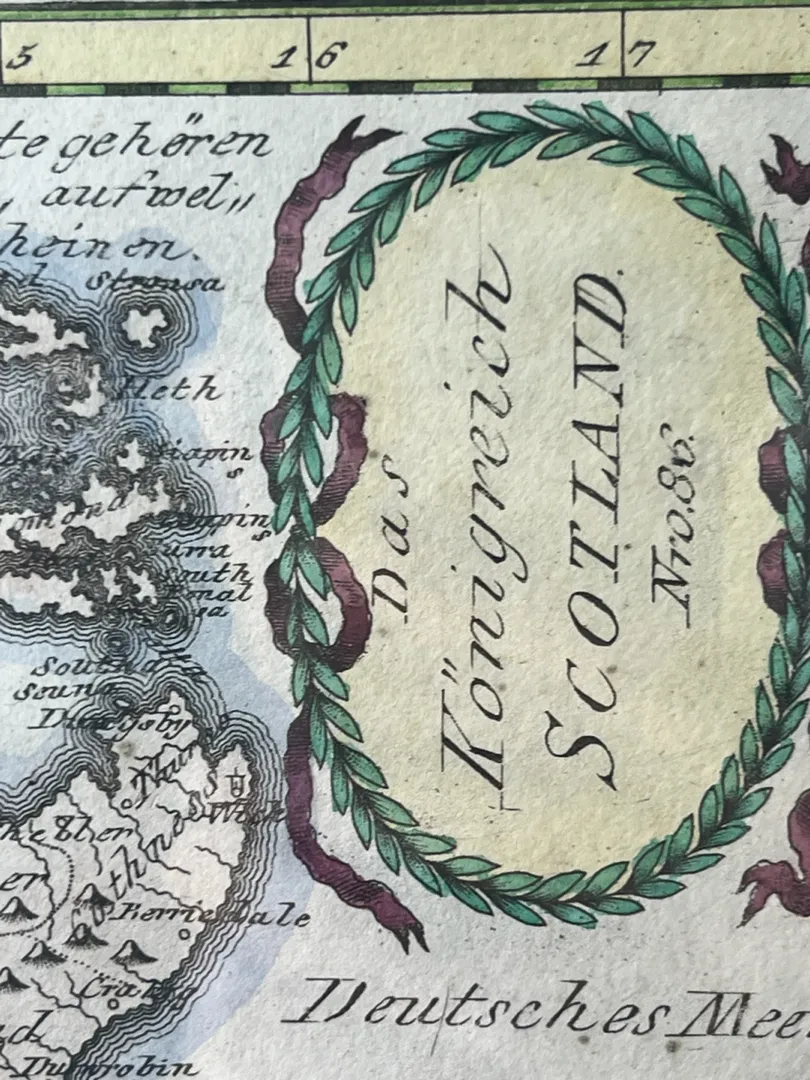 5 16 17
te gehören
, aufwel„
heinen.
Stronsa
Heth
Siapin
s
s
urra
south
nal
sa
South
soung
Dungsby
Wick
er
Berriedale
Dunrobin
Das
Königreich
SCOTLAND.
Nro. 86.
Deutsches Mee